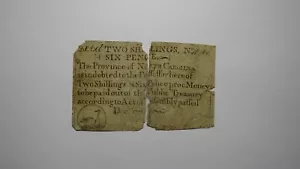 TWO SHILLINGS,
SIX PENCE
The Province of North Carolina
is indebted to the Possessor hereof
Two Shillings & Six Pence proc Money
to be paid out of the Public Treasury
according to Act of Assembly passed
D